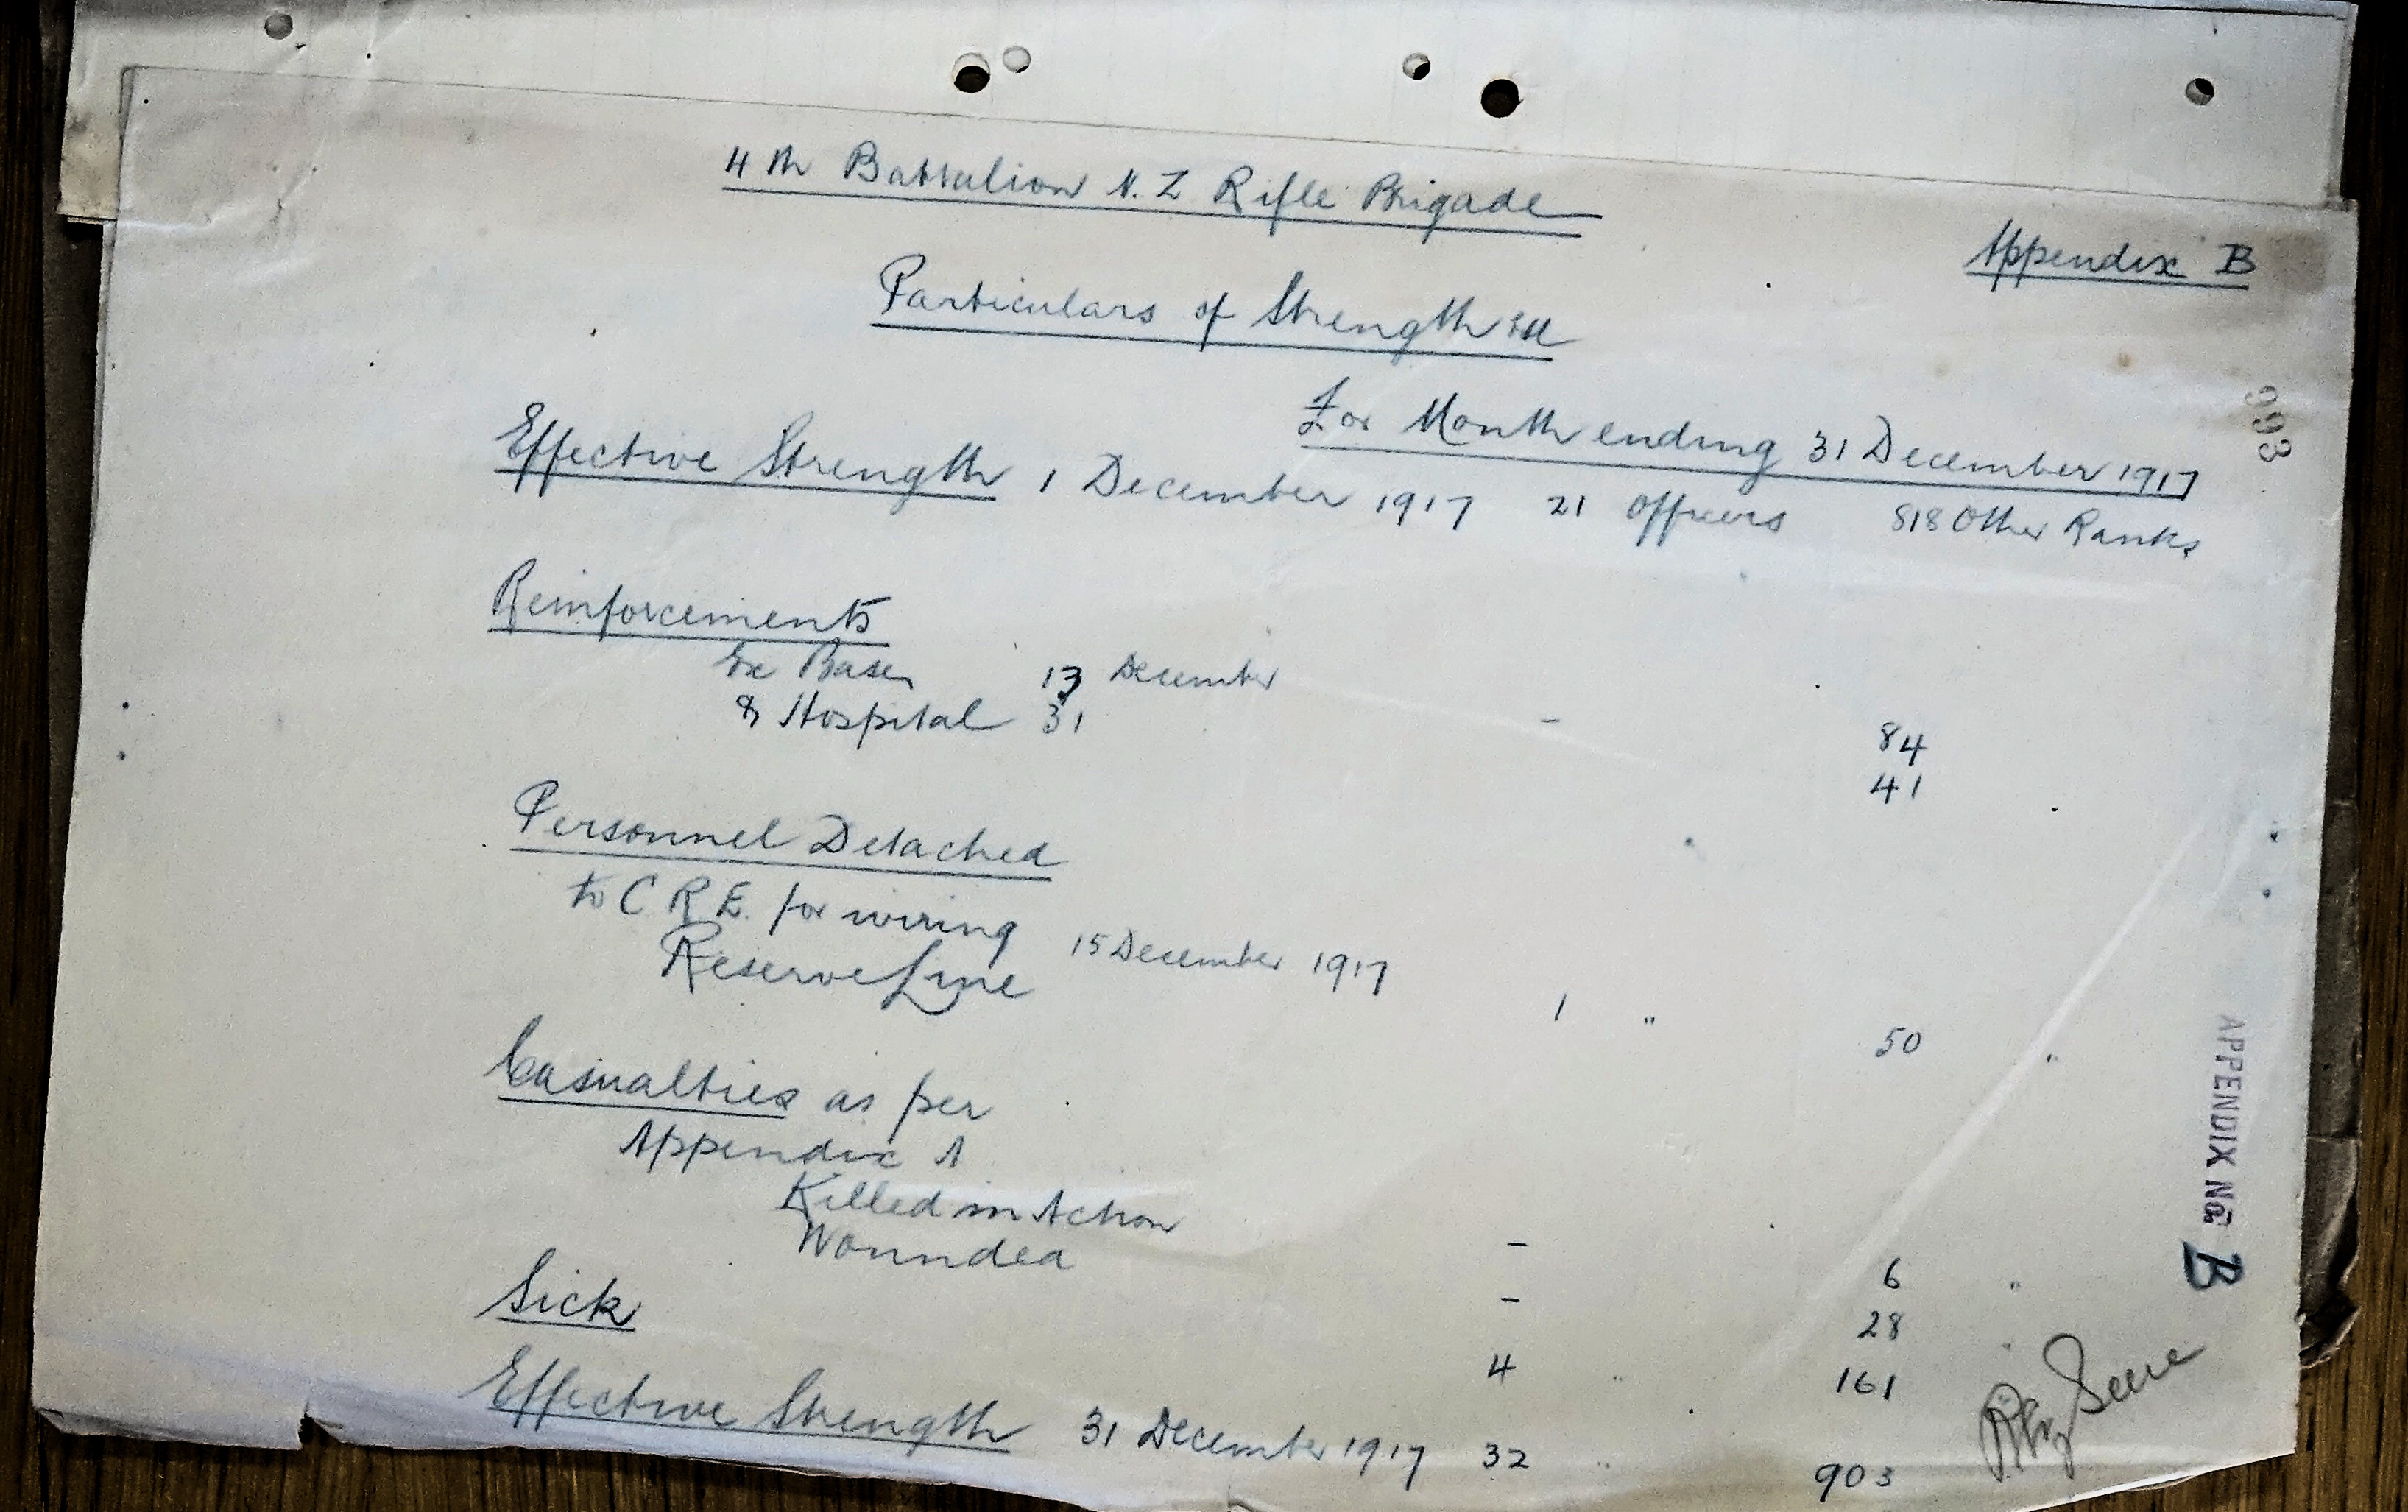 4th Battalion N.Z Rifle Brigade
Appendix B
Particulars of Strength etc
For Month ending 31 December 1917
993
Effective Strength 1 December 1917 21 Officers 818 Other Ranks
Reinforcements
Ex Base 13 December - 84
& Hospital 31 41
Personnel Detached
to C R E. for wiring
Reserve Line 15 December 1917 1 " 50 "
Casualties as per
Appendix A
Killed in Action - 6 "
Wounded - 28 "
Sick 4 " 161
Effective Strength 31 December 1917 32 " 903
APPENDIX No B